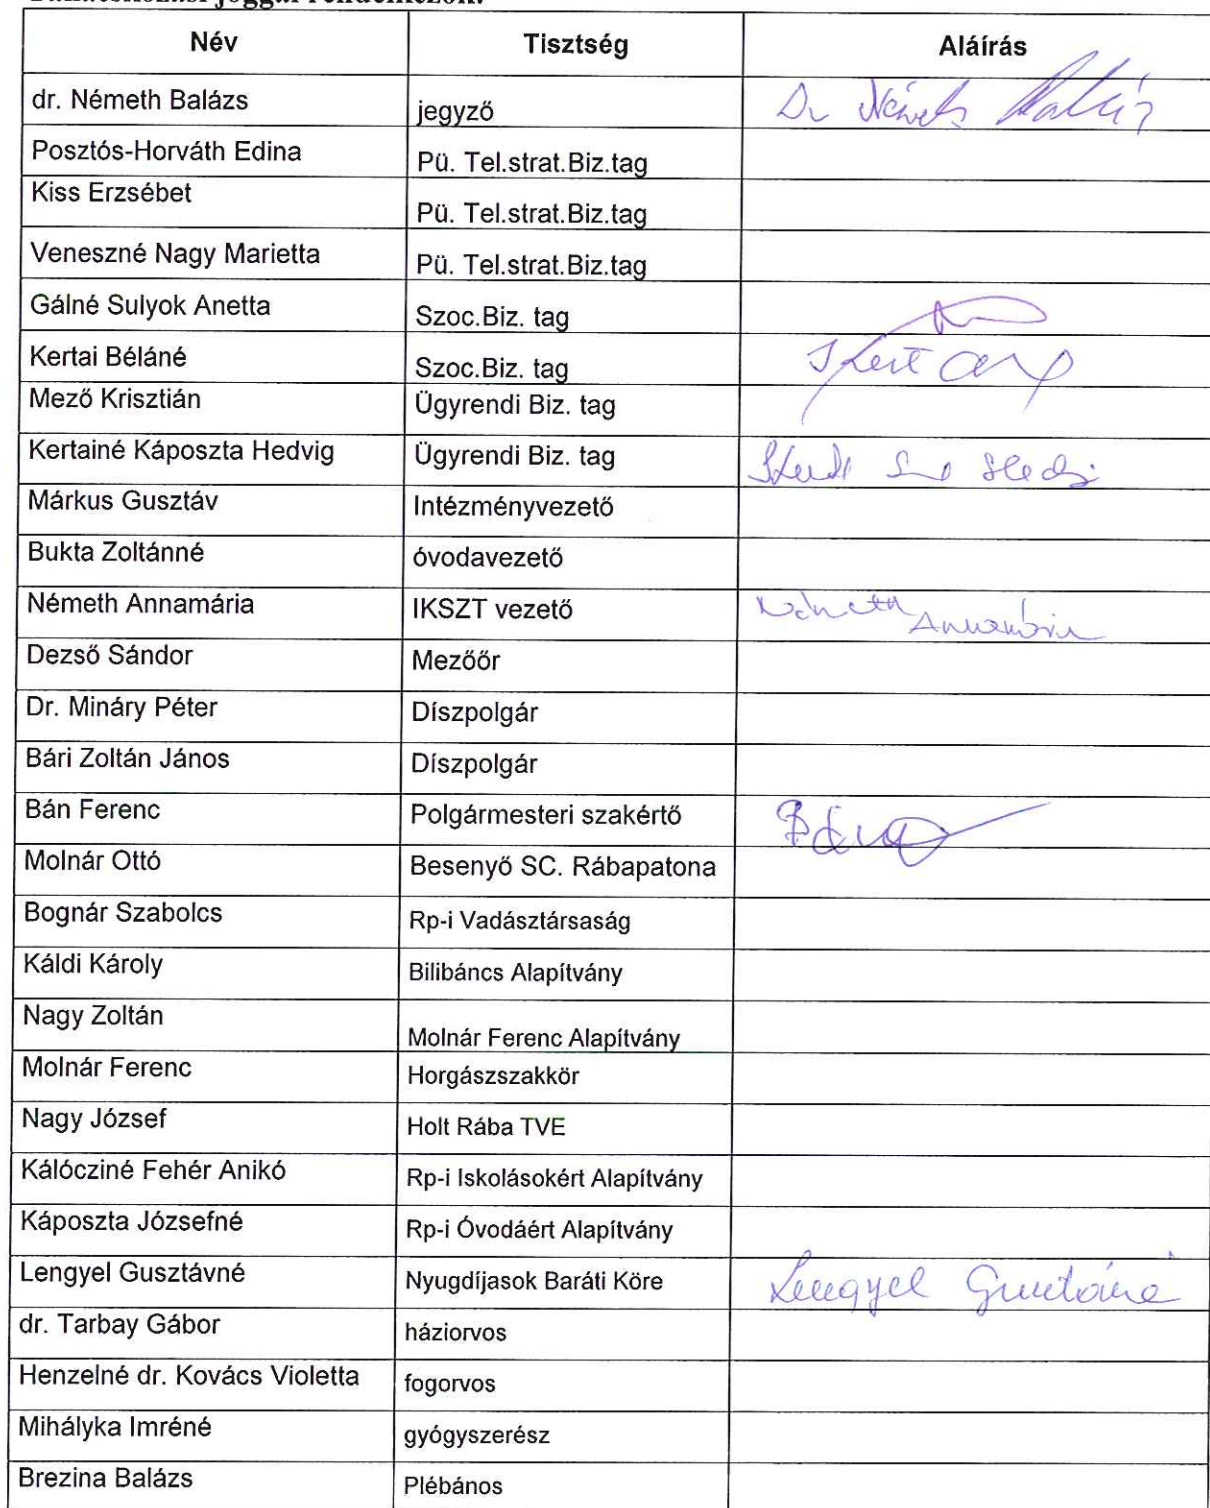 Tanácskozási joggal rendelkezők:
Név Tisztség Aláírás
dr. Németh Balázs jegyző Dr Németh Balázs
Posztós-Horváth Edina Pü. Tel.strat.Biz.tag
Kiss Erzsébet Pü. Tel.strat.Biz.tag
Veneszné Nagy Marietta Pü. Tel.strat.Biz.tag
Gálné Sulyok Anetta Szoc.Biz. tag
Kertai Béláné Szoc.Biz. tag
Mező Krisztián Ügyrendi Biz. tag
Kertainé Káposzta Hedvig Ügyrendi Biz. tag
Márkus Gusztáv Intézményvezető
Bukta Zoltánné óvodavezető
Németh Annamária IKSZT vezető Németh Annamária
Dezső Sándor Mezőőr
Dr. Mináry Péter Díszpolgár
Bári Zoltán János Díszpolgár
Bán Ferenc Polgármesteri szakértő
Molnár Ottó Besenyő SC. Rábapatona
Bognár Szabolcs Rp-i Vadásztársaság
Káldi Károly Bilibáncs Alapítvány
Nagy Zoltán Molnár Ferenc Alapítvány
Molnár Ferenc Horgászszakkör
Nagy József Holt Rába TVE
Kálócziné Fehér Anikó Rp-i Iskolásokért Alapítvány
Káposzta Józsefné Rp-i Óvodáért Alapítvány
Lengyel Gusztávné Nyugdíjasok Baráti Köre Lengyel Gusztávné
dr. Tarbay Gábor háziorvos
Henzelné dr. Kovács Violetta fogorvos
Mihályka Imréné gyógyszerész
Brezina Balázs Plébános